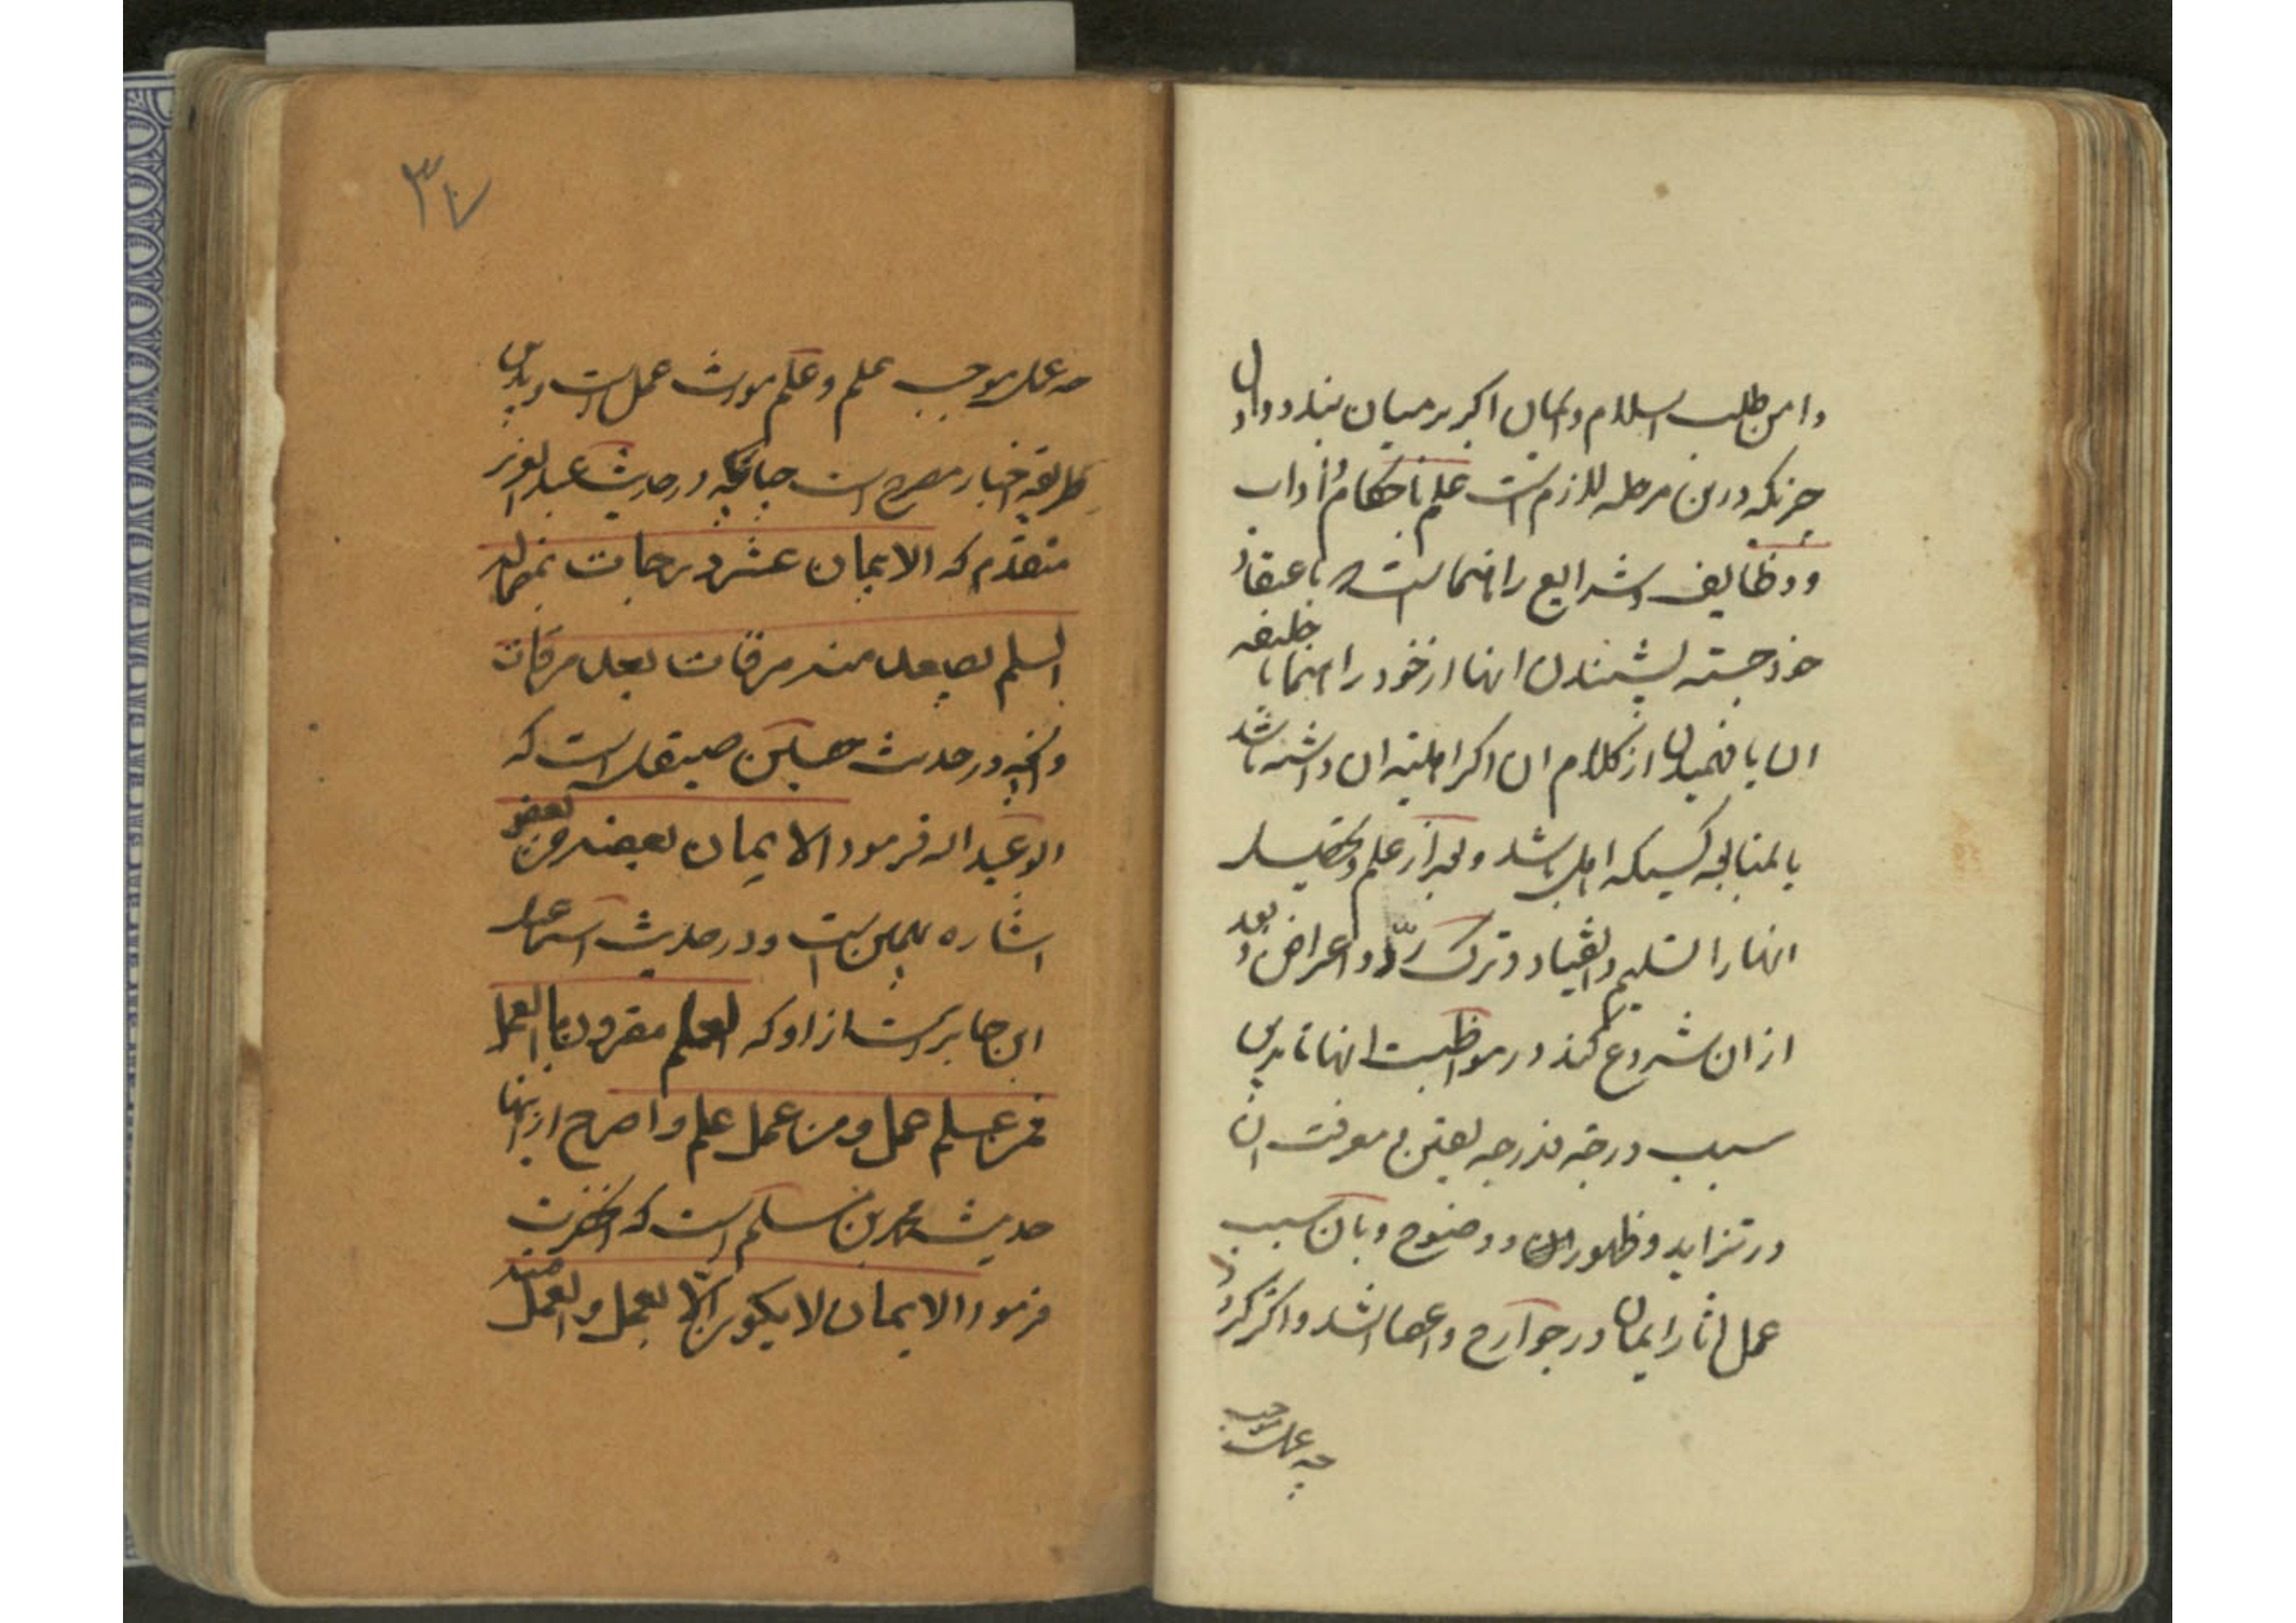 دامن طلب اسلام و ایمان اکبر بر میان بندد و اول
چیزیکه درین مرحله لازم است علم باحکام و آداب
و وظایف و شرایع راهنما است باعتقاد
خود جسته بشنیدن انها از خود راهنما یا خلیفه
ان یا فهمیدن از کلام ان اکر اهلیت ان داشته باشد
یا بمتابعه کسیکه اهل باشد و بعد از علم و تحصیل
انها را تسلیم و انقیاد و ترک ردّ و اعراض و بعد
از ان شروع کند در مواظبت انها تا بدین
سبب درجه بدرجه یقین و معرفت ان
در تزاید و ظهور و وضوح و بان سبب
عمل اثار ایمان در جوارح و اعضا اشد و اکثر کردد
چه عمل موجب
٣٧
چه عمل موجب علم و علم مورث عمل است و بدین
طریقه اخبار مصرح است چنانچه در حدیث عبد العزیز
متقدّم که الایمان عشر درجات بمنزله
السلم یصعد منه مرقات بعد مرقات
و انچه در حدیث حسین صیقل است که
ابو عبد اله فرمود الایمان بعضه من بعض
اشاره بهمین است و در حدیث اسمعیل
ابن جابر است از او که العلم مقرون بالعمل
فمن علم عمل و من عمل علم و اصرح از اینها
حدیث محمد بن مسلم است که انحضرت
فرمود الایمان لا یکون الّا بعمل و العمل منه